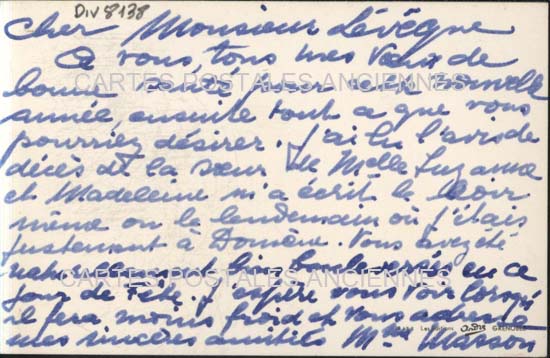 Div 8138
Cher Monsieur Lévêque
A vous, tous mes vœux de
bonne année, pour cette nouvelle
année, ensuite tout ce que vous
pourriez désirer. J'ai lu l'avis de
décès de la sœur de Melle Suzanne
et Madeleine m'a écrit le soir
même ou le lendemain où j'étais
justement à Domène. Vous avez été
naturellement bien bouleversés en ce
jour de Fête. J'espère vous voir lorsqu'
il fera moins froid et vous adresse
mes sincères amitiés Mme Masson
CARTES POSTALES ANCIENNES
CARTES POSTALES ANCIENNES
Les Editions André GRENOBLE